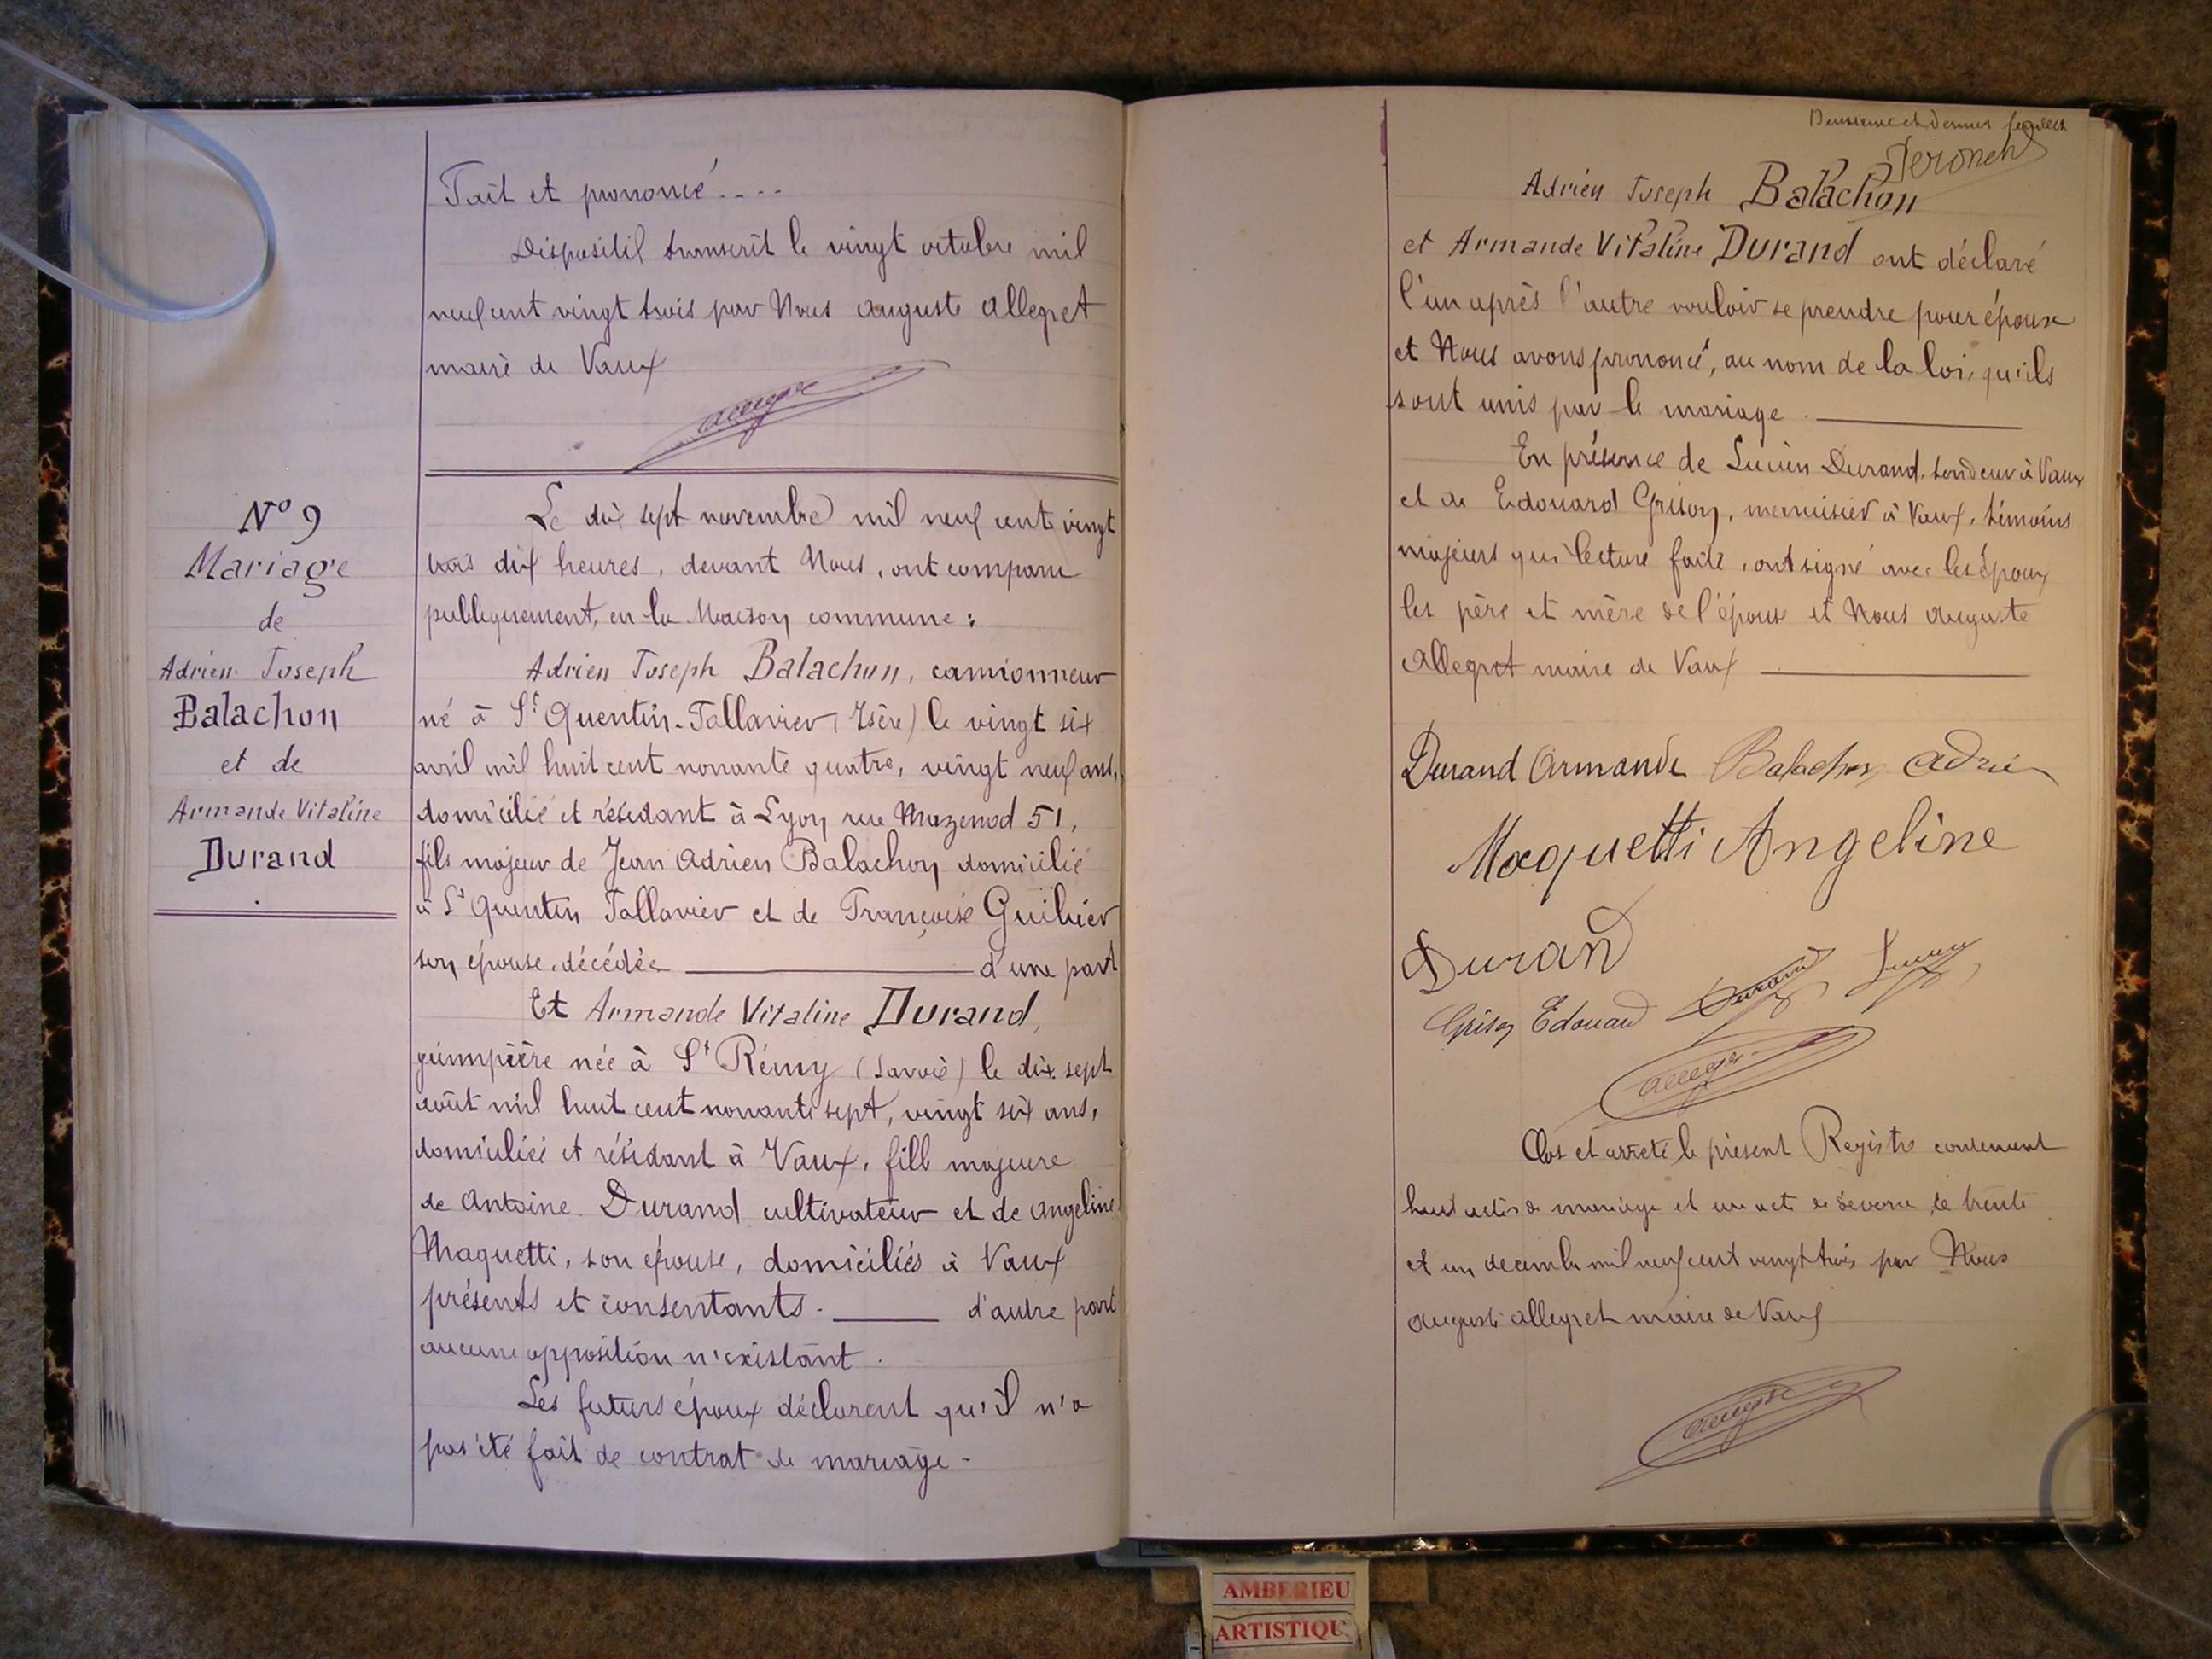 Fait et prononcé....
Dispositif transcrit le vingt octobre mil
neuf cent vingt trois par Nous Auguste Allegret
maire de Vaux
Allegret
N° 9
Mariage
de
Adrien Joseph
Balachon
et de
Armande Vitaline
Durand
Le dix sept novembre mil neuf cent vingt
trois dix heures, devant Nous, ont comparu
publiquement, en la Maison commune :
Adrien Joseph Balachon, camionneur
né à St Quentin-Fallavier (Isère) le vingt six
avril mil huit cent nonante quatre, vingt neuf ans,
domicilié et résidant à Lyon rue Mazenod 51,
fils majeur de Jean Adrien Balachon domicilié
à St Quentin Fallavier et de Françoise
son épouse, décédée d'une part
Et Armande Vitaline Durand,
guimpière née à St Rémy (Savoie) le dix sept
août mil huit cent nonante sept, vingt six ans,
domiciliée et résidant à Vaux, fille majeure
de Antoine Durand cultivateur et de Angeline
Maquetti, son épouse, domiciliés à Vaux
présents et consentants. d'autre part
aucune opposition n'existant.
Les futurs époux déclarent qu'il n'a
pas été fait de contrat de mariage -
Deuxième et dernier feuillet
Adrien Joseph Balachon
et Armande Vitaline Durand ont déclaré
l'un après l'autre vouloir se prendre pour époux
et Nous avons prononcé, au nom de la loi, qu'ils
sont unis par le mariage.
En présence de Lucien Durand, tondeur à Vaux
et de Edouard Grison, menuisier à Vaux, témoins
majeurs qui lecture faite, ont signé avec les époux
les père et mère de l'épouse et Nous Auguste
Allegret maire de Vaux
Durand Armande Balachon Adrien
Maquetti Angeline
Durand
Grison Edouard Durand Lucien
Allegret
Clos et arrêté le présent Registre contenant
huit actes de mariage et un acte de divorce le trente
et un décembre mil neuf cent vingt trois par Nous
Auguste Allegret maire de Vaux
Allegret
AMBERIEU
ARTISTIQU